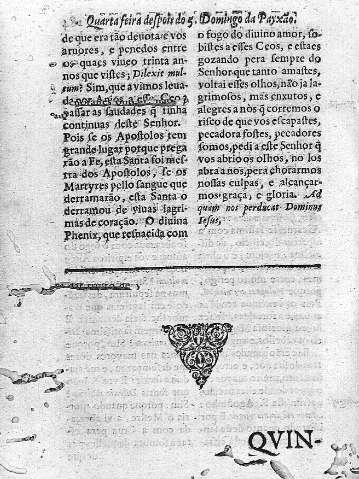 Quarta feira despois do 5. Domingo da Payxão.
de que era tão deuota: e vos
amores, e penedos entre
os quaes viueo trinta an-
nos que vistes; Dilexit mul-
tum? Sim, que a vimos leua-
passar as saudades q̃ tinha
continuas deste Senhor.
Pois se os Apostolos tem
grande lugar porque prega
rão a Fè, esta Santa foi mes-
tra dos Apostolos, se os
Martyres pello sangue que
derramarão, esta Santa o
derramou de viuas lagri-
mas de coração. O diuina
Phenix, que resnacida com
o fogo do diuino amor, so-
bistes a esses Ceos, e estaes
gozando pera sempre do
Senhor que tanto amastes,
voltai esses olhos, não ja la-
grimosos, mas enxutos, e
alegres a nòs q̃ corremos o
risco de que vos escapastes,
pecadora fostes, pecadores
somos, pedi a este Senhor q̃
vos abrio os olhos, no los
abra a nos, pera chorarmos
nossas culpas, e alcançar-
mos graça, e gloria. Ad
quam nos perducat Dominus
Iesus,
QVIN-